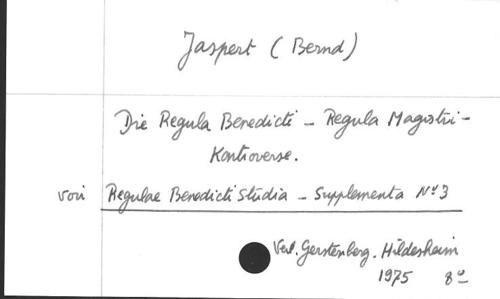 Jaspert (Bernd)
Die Regula Benedicti - Regula Magistri-
Kontroverse.
voir Regulae Benedicti Studia - Supplementa Nº 3
Verl. Gerstenberg. Hildesheim
1975 8º